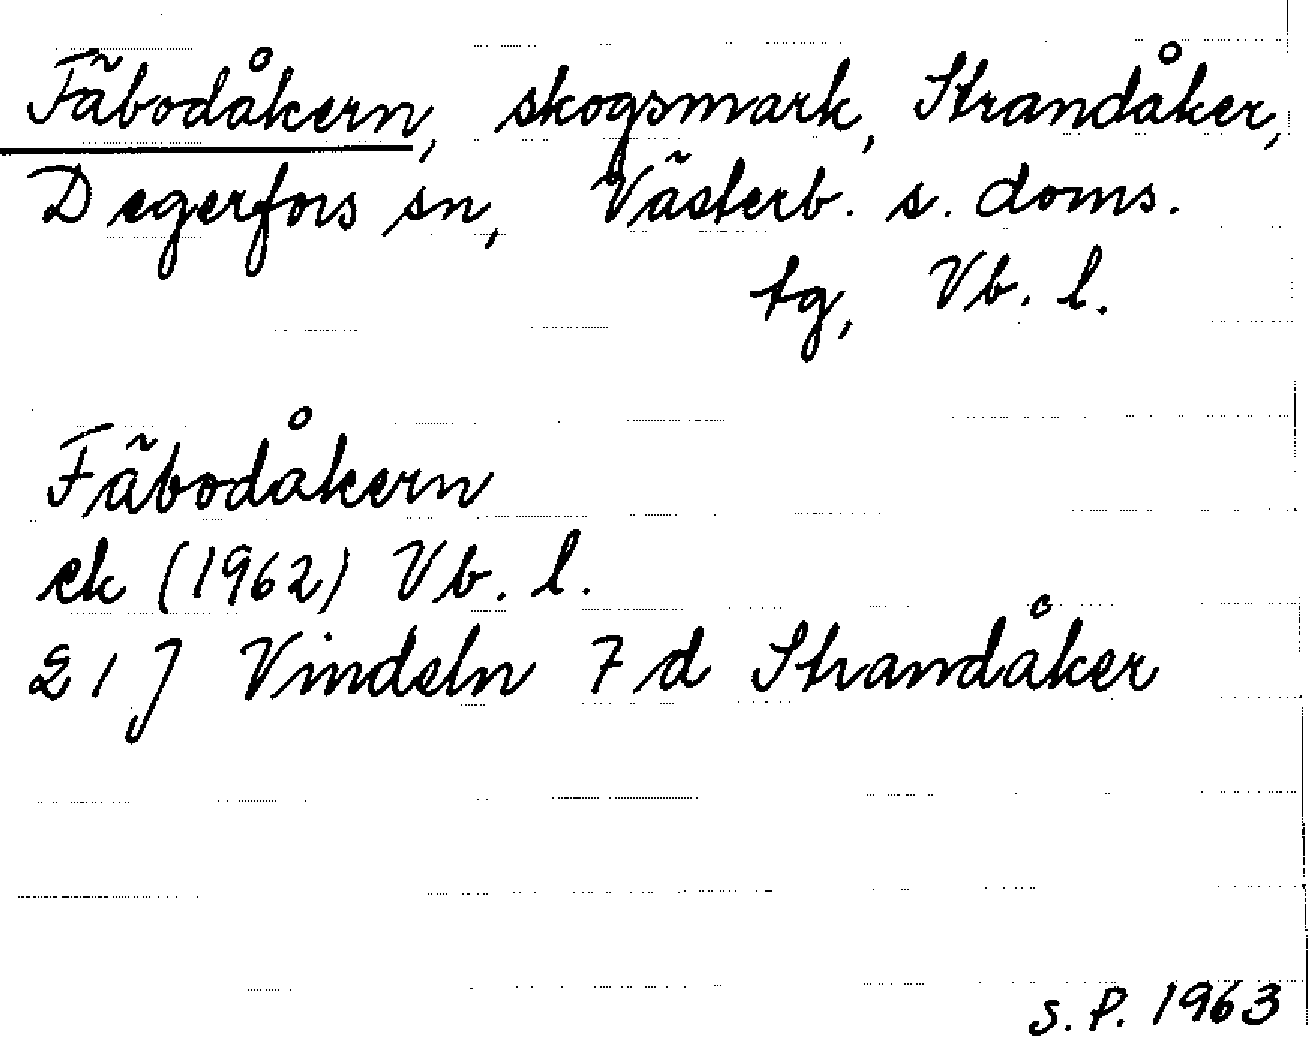 Fäbodåkern, skogsmark, Strandåker,
Degerfors sn, Västerb. s. doms.
tg, Vb. l.
Fäbodåkern
ek (1962) Vb. l.
21 J Vindeln 7 d Strandåker
S. P. 1963